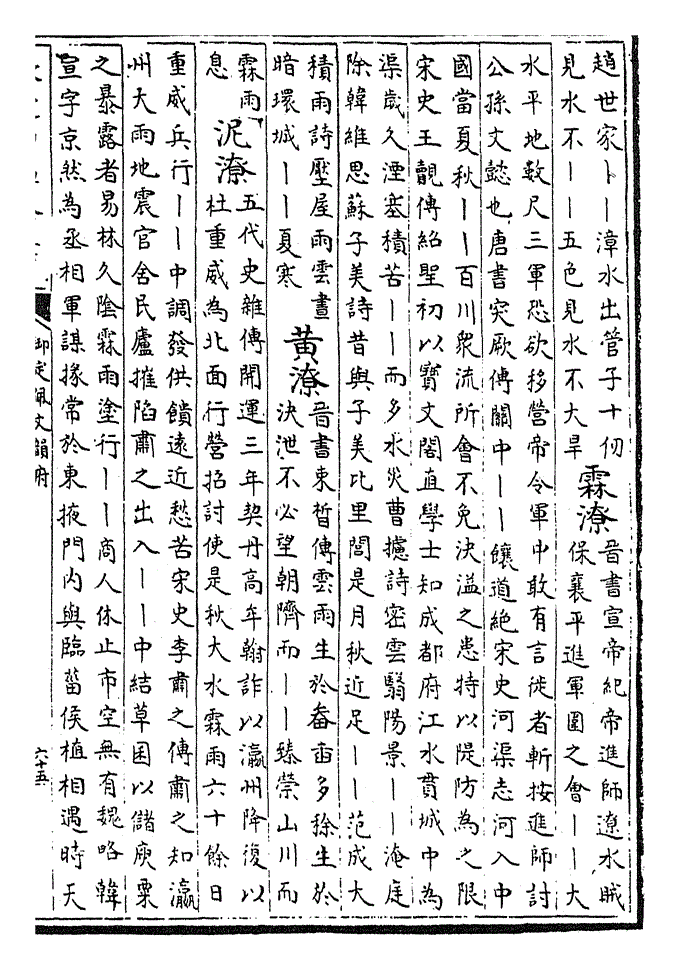 趙世家｜｜漳水出管子十仞
見水不｜｜五色見水不大旱
霖潦
晉書宣帝紀帝進師遼水賊
保襄平進軍圍之會｜｜大
水平地數尺三軍恐欲移營帝令軍中敢有言徙者斬按進師討
公孫文懿也唐書突厥傳關中｜｜饟道絕宋史河渠志河入中
國當夏秋｜｜百川衆流所會不免決溢之患特以隄防為之限
宋史王覿傳紹聖初以寶文閣直學士知成都府江水貫城中為
渠歲久湮塞積苦｜｜而多水災曹攄詩密雲翳陽景｜｜淹庭
除韓維思蘇子美詩昔與子美比里閭是月秋近足｜｜范成大
積雨詩壓屋雨雲晝
暗環城｜｜夏寒
黃潦
晉書束晳傳雲雨生於畚臿多稌生於
決泄不必望朝隮而｜｜臻禜山川而
霖雨
息
泥潦
五代史雜傳開運三年契丹高牟翰詐以瀛州降復以
杜重威為北面行營招討使是秋大水霖雨六十餘日
重威兵行｜｜中調發供饋遠近愁苦宋史李肅之傳肅之知瀛
州大雨地震官舍民廬摧陷肅之出入｜｜中結草囷以儲庾粟
之暴露者易林久陰霖雨塗行｜｜商人休止市空無有魏略韓
宣字京然為丞相軍謀掾常於東掖門內與臨菑侯植相遇時天
御定佩文韻府
六十五